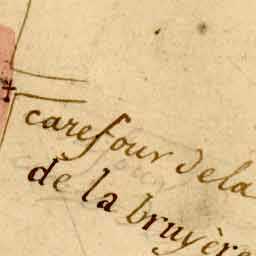 carefour de la
de la bruyère